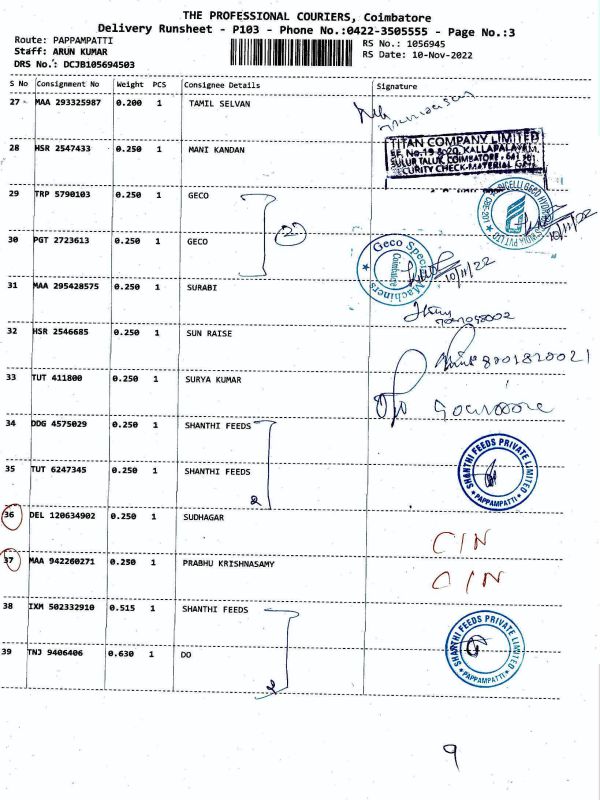 THE PROFESSIONAL COURIERS, Coimbatore
Delivery Runsheet - P103 - Phone No.:0422-3505555 - Page No.:3
Route: PAPPAMPATTI
Staff: ARUN KUMAR
DRS No.: DCJB105694503
RS No.: 1056945
RS Date: 10-Nov-2022
S No Consignment No Weight PCS Consignee Details Signature
27 MAA 293325987 0.200 1 TAMIL SELVAN
28 HSR 2547433 0.250 1 MANI KANDAN
TITAN COMPANY LIMITED
SF. No.19 &20, KALLAPALAYAM,
SULUR TALUK, COIMBATORE
SECURITY CHECK-MATERIAL GATE
29 TRP 5790103 0.250 1 GECO
2
10/11/22
30 PGT 2723613 0.250 1 GECO
Geco Special Machiners
Coimbatore
10/11/22
31 MAA 295428575 0.250 1 SURABI
32 HSR 2546685 0.250 1 SUN RAISE
8001820021
33 TUT 411800 0.250 1 SURYA KUMAR
34 DDG 4575029 0.250 1 SHANTHI FEEDS
35 TUT 6247345 0.250 1 SHANTHI FEEDS
2
SHANTHI FEEDS PRIVATE LIMITED
PAPPAMPATTI
36 DEL 120634902 0.250 1 SUDHAGAR
C/N
37 MAA 942260271 0.250 1 PRABHU KRISHNASAMY
C/N
38 IXM 502332910 0.515 1 SHANTHI FEEDS
39 TNJ 9406406 0.630 1 DO
2
SHANTHI FEEDS PRIVATE LIMITED
PAPPAMPATTI
9